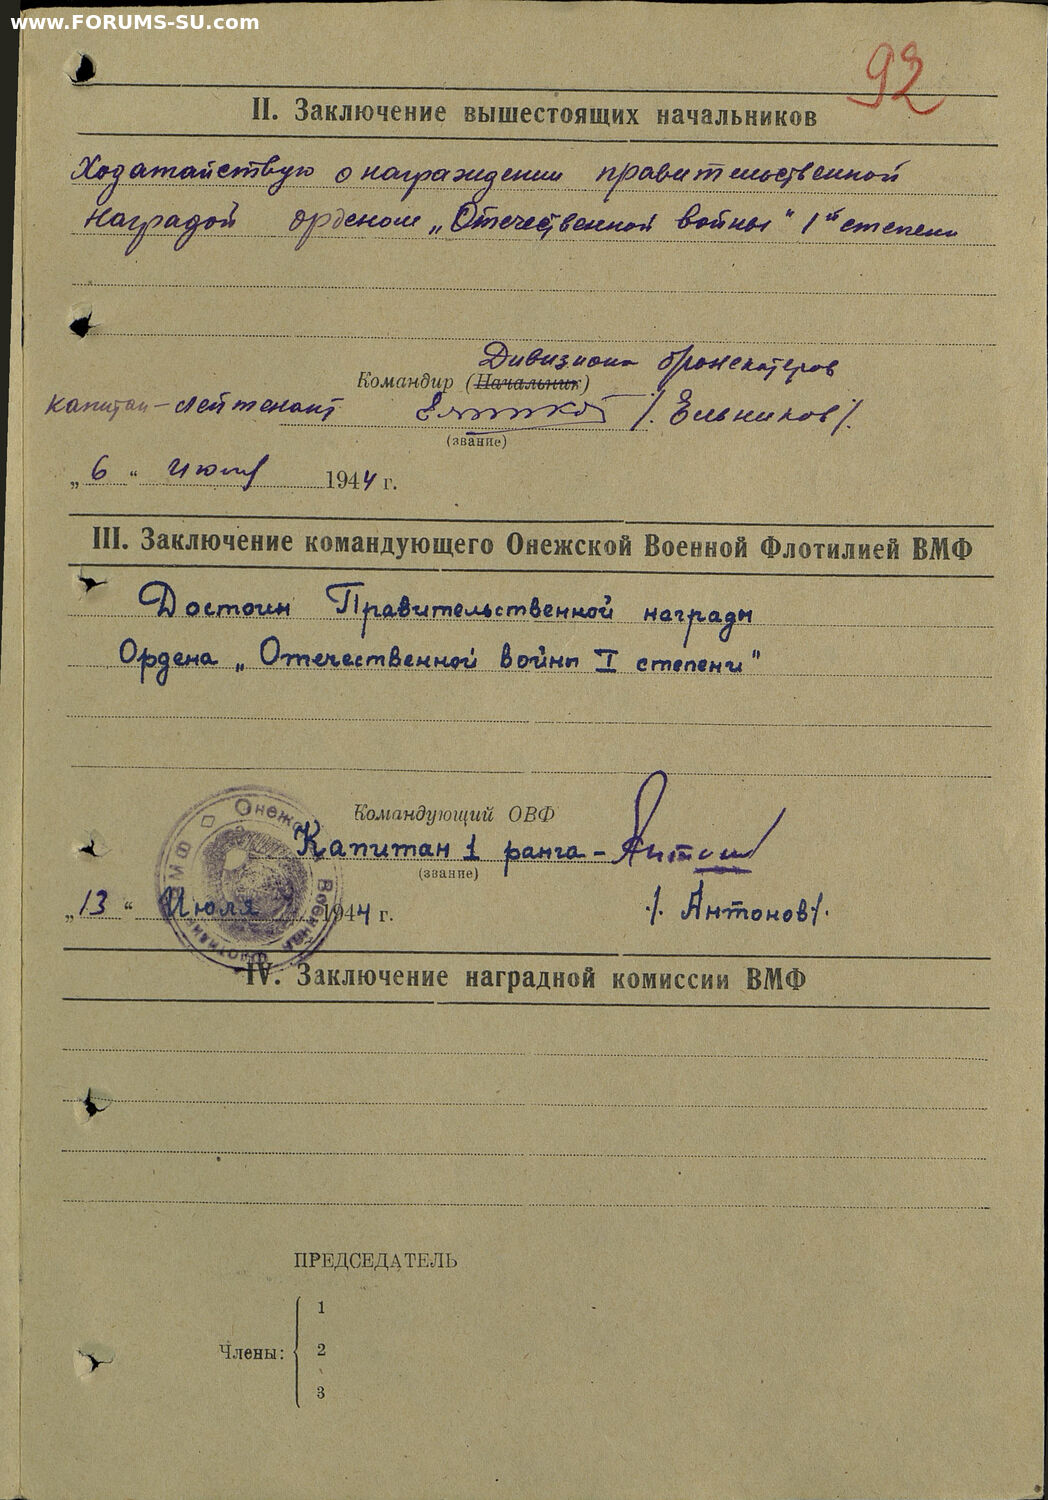 www.FORUMS-SU.com
92
II. Заключение вышестоящих начальников
Ходатайствую о награждении правительственной
наградой орденом „Отечественной войны" 1й степени
Дивизиона бронекатеров
Командир (Начальник)
капитан-лейтенант /Ельников/.
(звание)
„6" июля 1944 г.
III. Заключение командующего Онежской Военной Флотилией ВМФ
Достоин Правительственной награды
Ордена „Отечественной войны I степени"
Командующий ОВФ
Капитан 1 ранга -
(звание)
„13" Июля 1944 г.
/. Антонов/.
Онежск Военная Флотилия ВМФ
IV. Заключение наградной комиссии ВМФ
ПРЕДСЕДАТЕЛЬ
Члены:
1
2
3